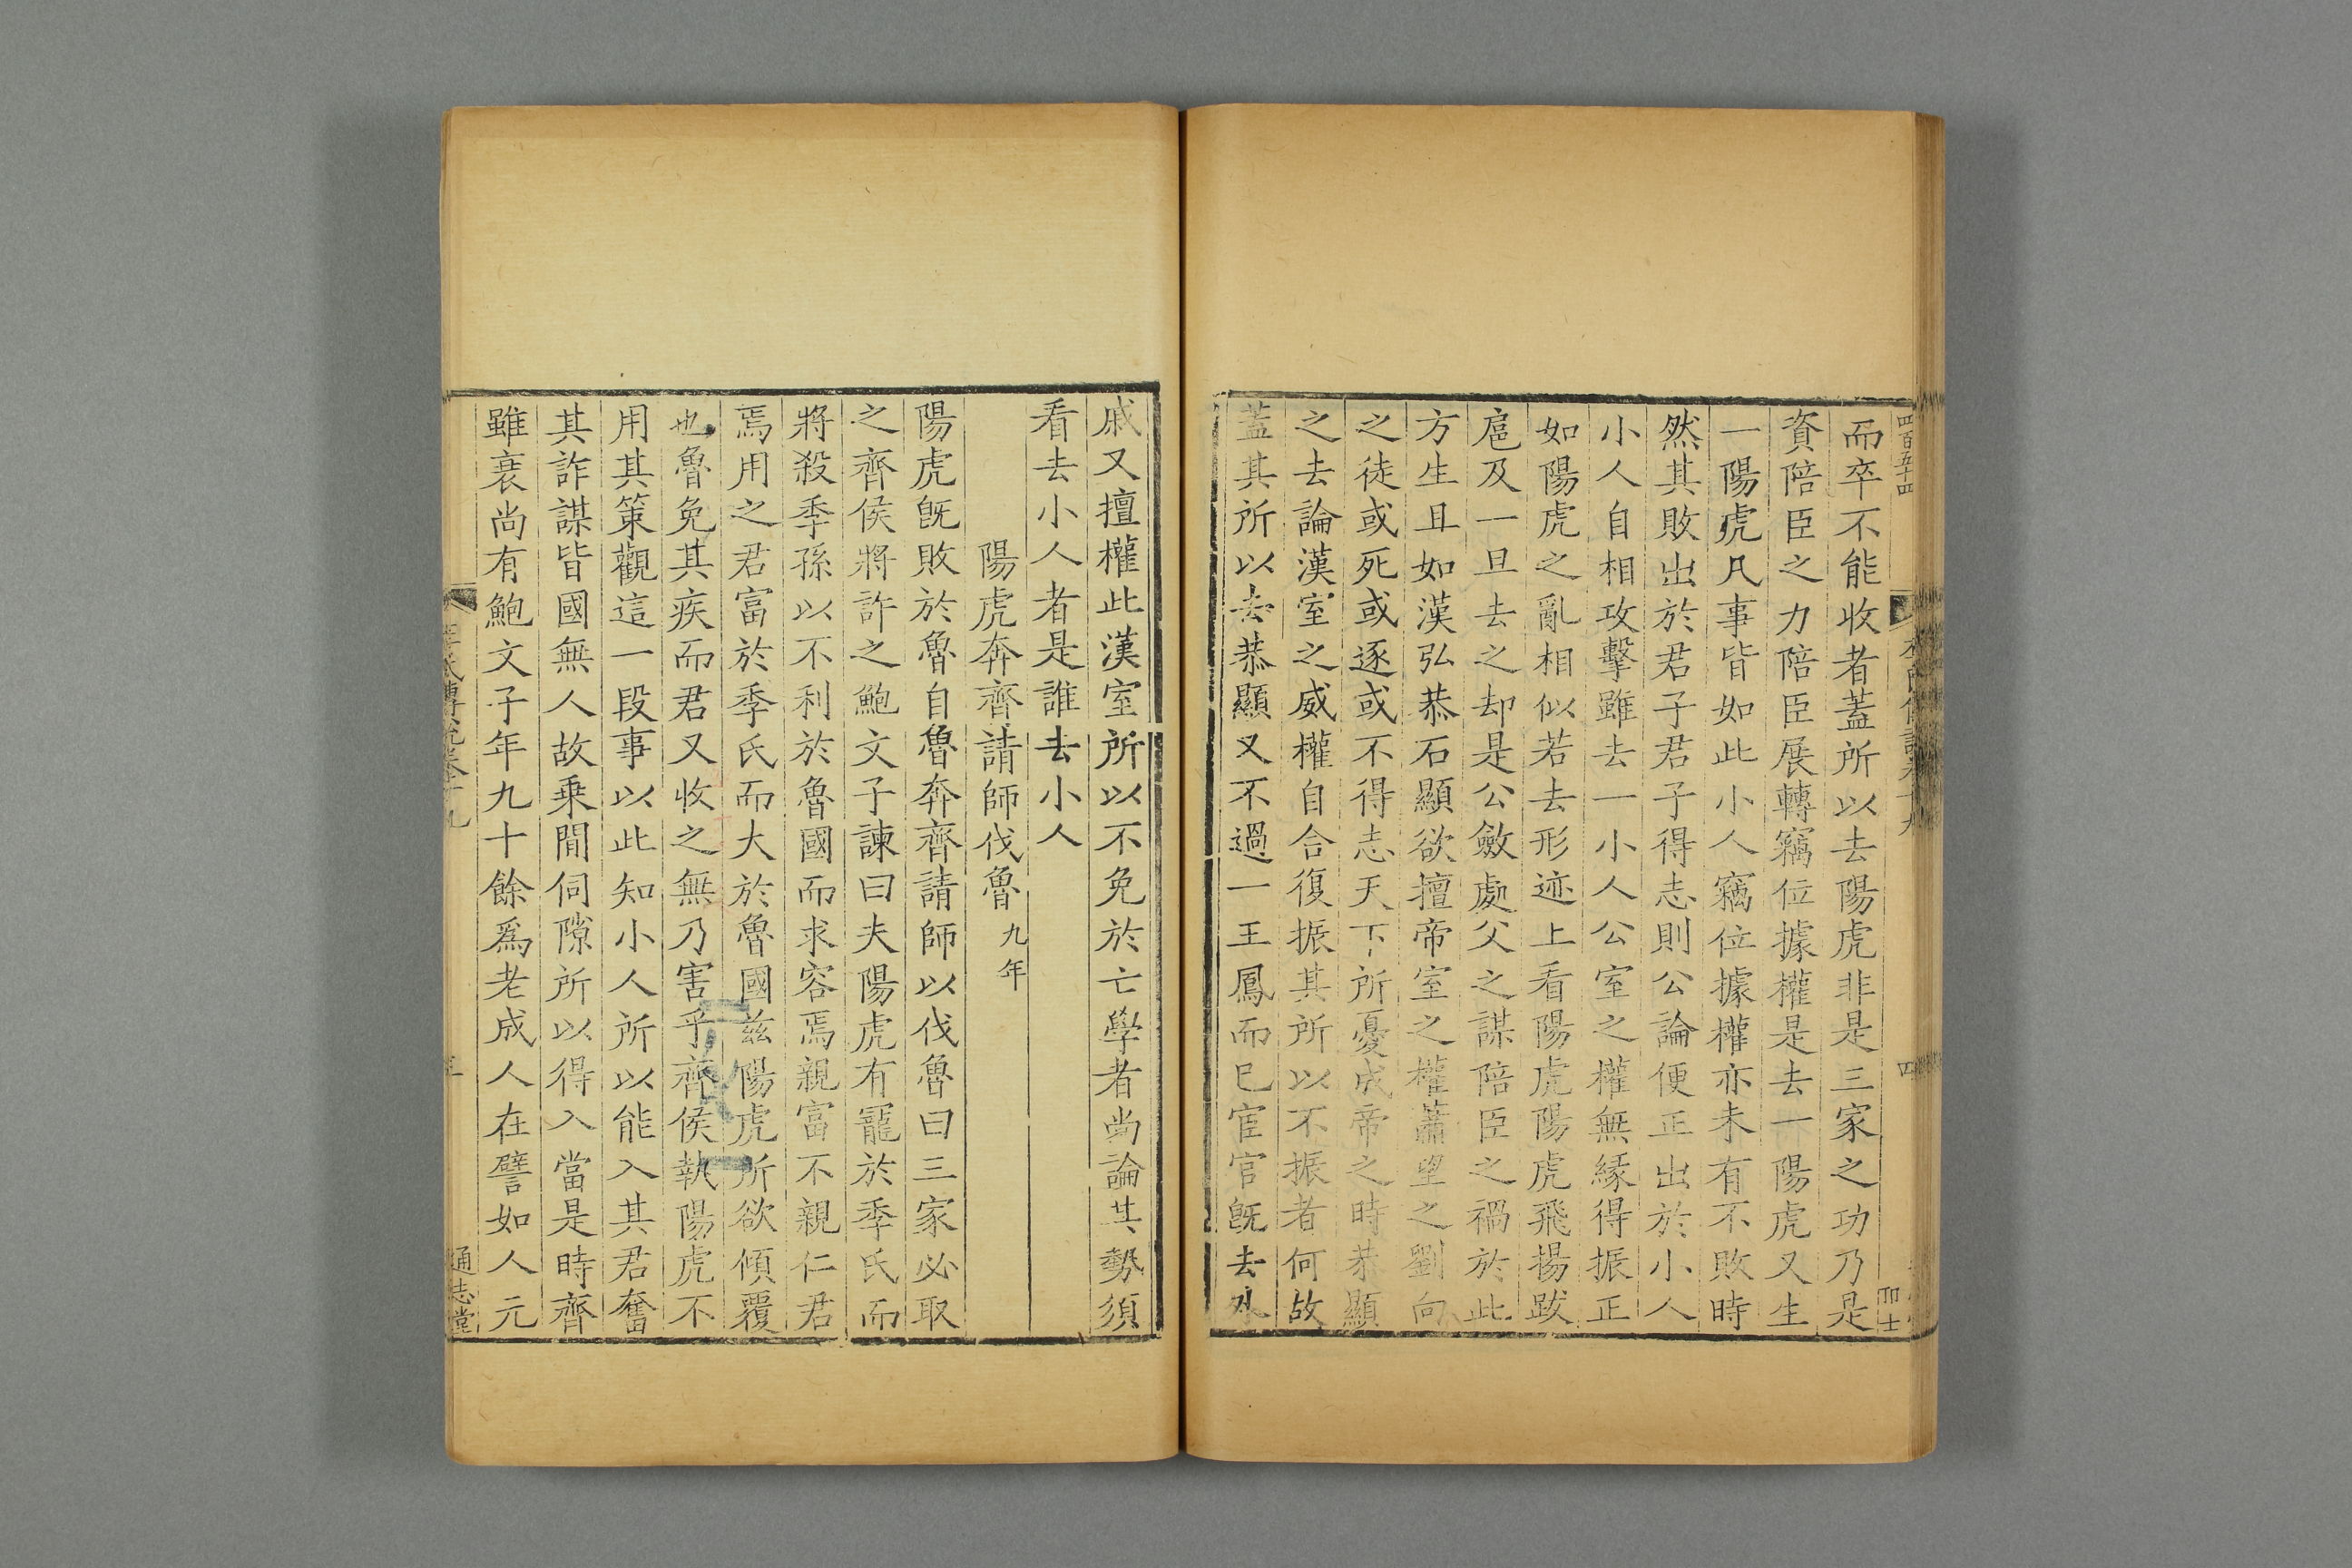 四百五十四
而卒不能收者蓋所以去陽虎非是三家之功乃是
資陪臣之力陪臣展轉竊位據權是去一陽虎又生
一陽虎凡事皆如此小人竊位據權亦未有不敗時
然其敗出於君子君子得志則公論便正出於小人
小人自相攻擊雖去一小人公室之權無緣得振正
如陽虎之亂相似若去形迹上看陽虎陽虎飛揚跋
扈及一旦去之却是公斂處父之謀陪臣之禍於此
方生且如漢弘恭石顯欲擅帝室之權蕭望之劉向
之徒或死或逐或不得志天下所憂成帝之時恭顯
之去論漢室之威權自合復振其所以不振者何故
蓋其所以去恭顯又不過一王鳳而已宦官旣去外
戚又擅權此漢室所以不免於亡學者尚論其勢須
看去小人者是誰去小人
陽虎奔齊請師伐魯九年
陽虎旣敗於魯自魯奔齊請師以伐魯曰三家必取
之齊侯將許之鮑文子諫曰夫陽虎有寵於季氏而
將殺季孫以不利於魯國而求容焉親富不親仁君
焉用之君富於季氏而大於魯國茲陽虎所欲傾覆
也魯免其疾而君又收之無乃害乎齊侯執陽虎不
用其策觀這一段事以此知小人所以能入其君奮
其詐謀皆國無人故乗間伺隙所以得入當是時齊
雖衰尚有鮑文子年九十餘爲老成人在譬如人元
通志堂